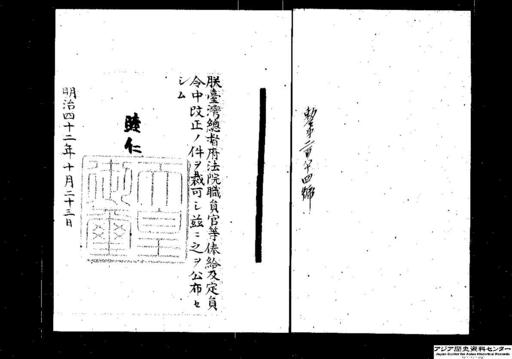 勅令第二百八十四號
朕臺灣總督府法院職員官等俸給及定員
令中改正ノ件ヲ裁可シ茲ニ之ヲ公布セ
シム
睦仁
天皇
御璽
明治四十二年十月二十三日
アジア歴史資料センター
Japan Center for Asian Historical Records